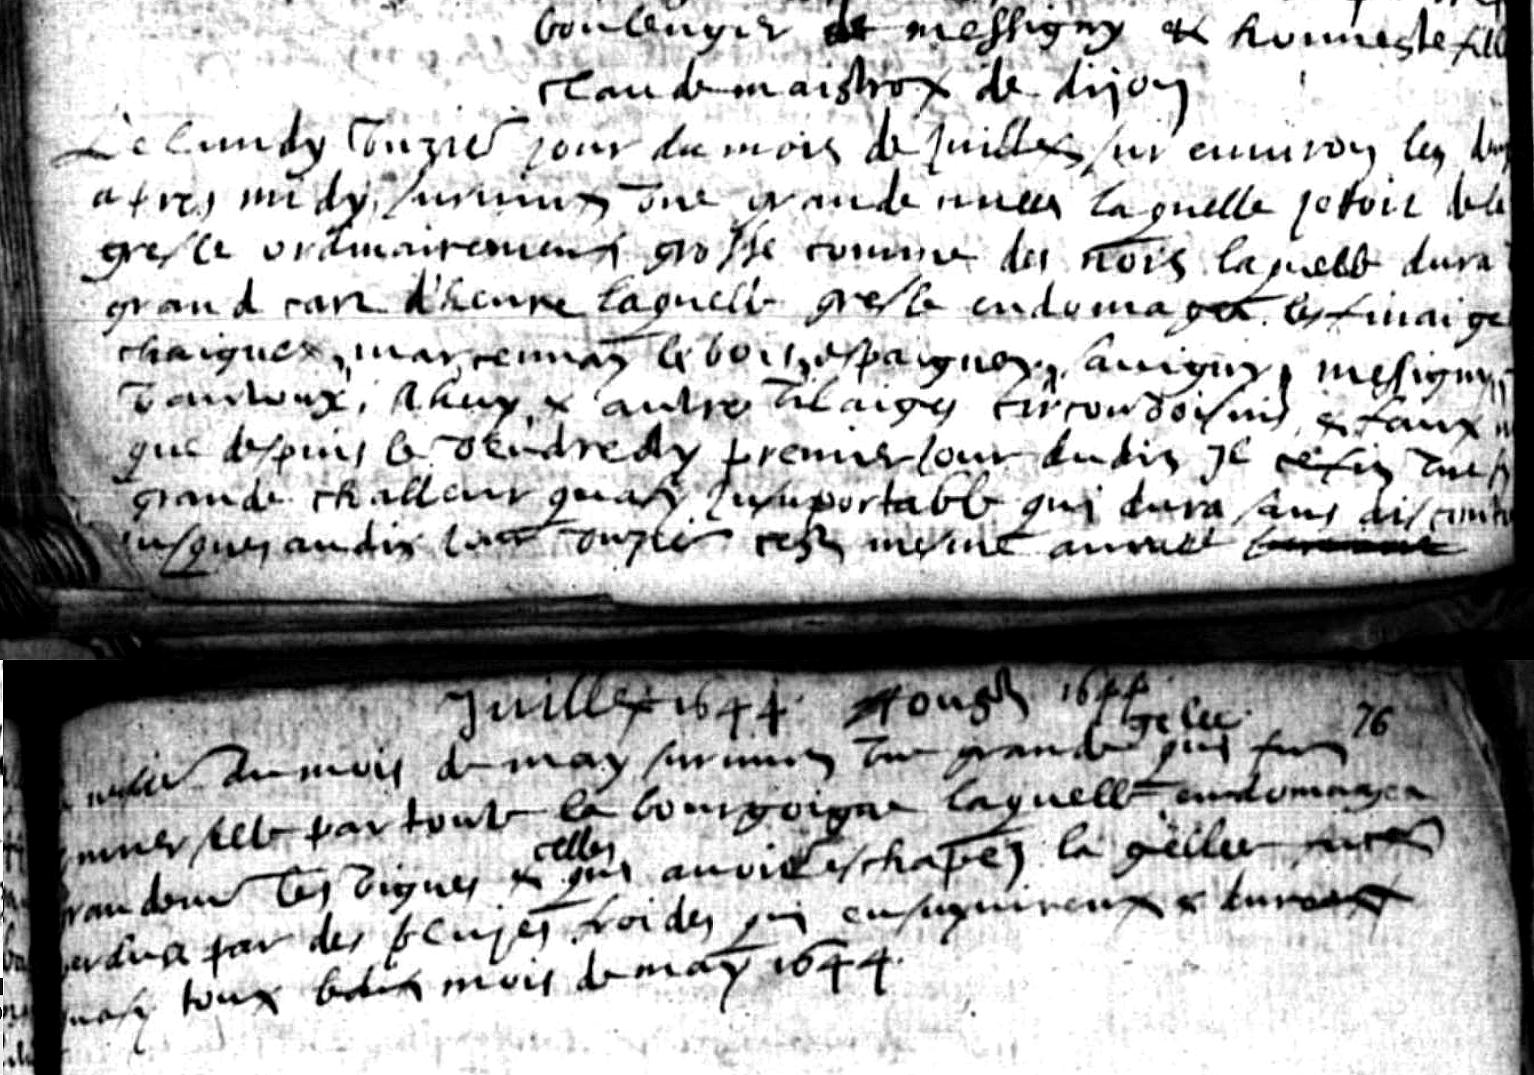 boulenger de messigny & honneste fill
claude maistrox de dijon
Le lundy onzieme jour du mois de juillet sur environ les deux
apres midy survint une grande nuee laquelle jetoit de la
gresle ordinairement grosse comme des nois laquelle dura
grand cart d'heure laquelle gresle endomagea les finaige
chaignex, marcennay le bois, espaignex, savigny, messigny,
vantoux, Ahuy, & autre vilaiges circonvoisins, & faux
que despuis le vendredy premier jour dudit il cefit une
grande challeur quasy insuportable qui dura sans discontin
jusques audit onzie cest mesme annee
Juillet 1644 Aougst 1644
76
gelee
du mois de may survint une grande qui fut
universelle par toute la bourgoigne laquelle endomagea
grandem les vignes & qui avoient eschapez la gellee
celles
perdus par des pluyes froides qui ensuyvirent & durerent
quasy tout ledit mois de may 1644.